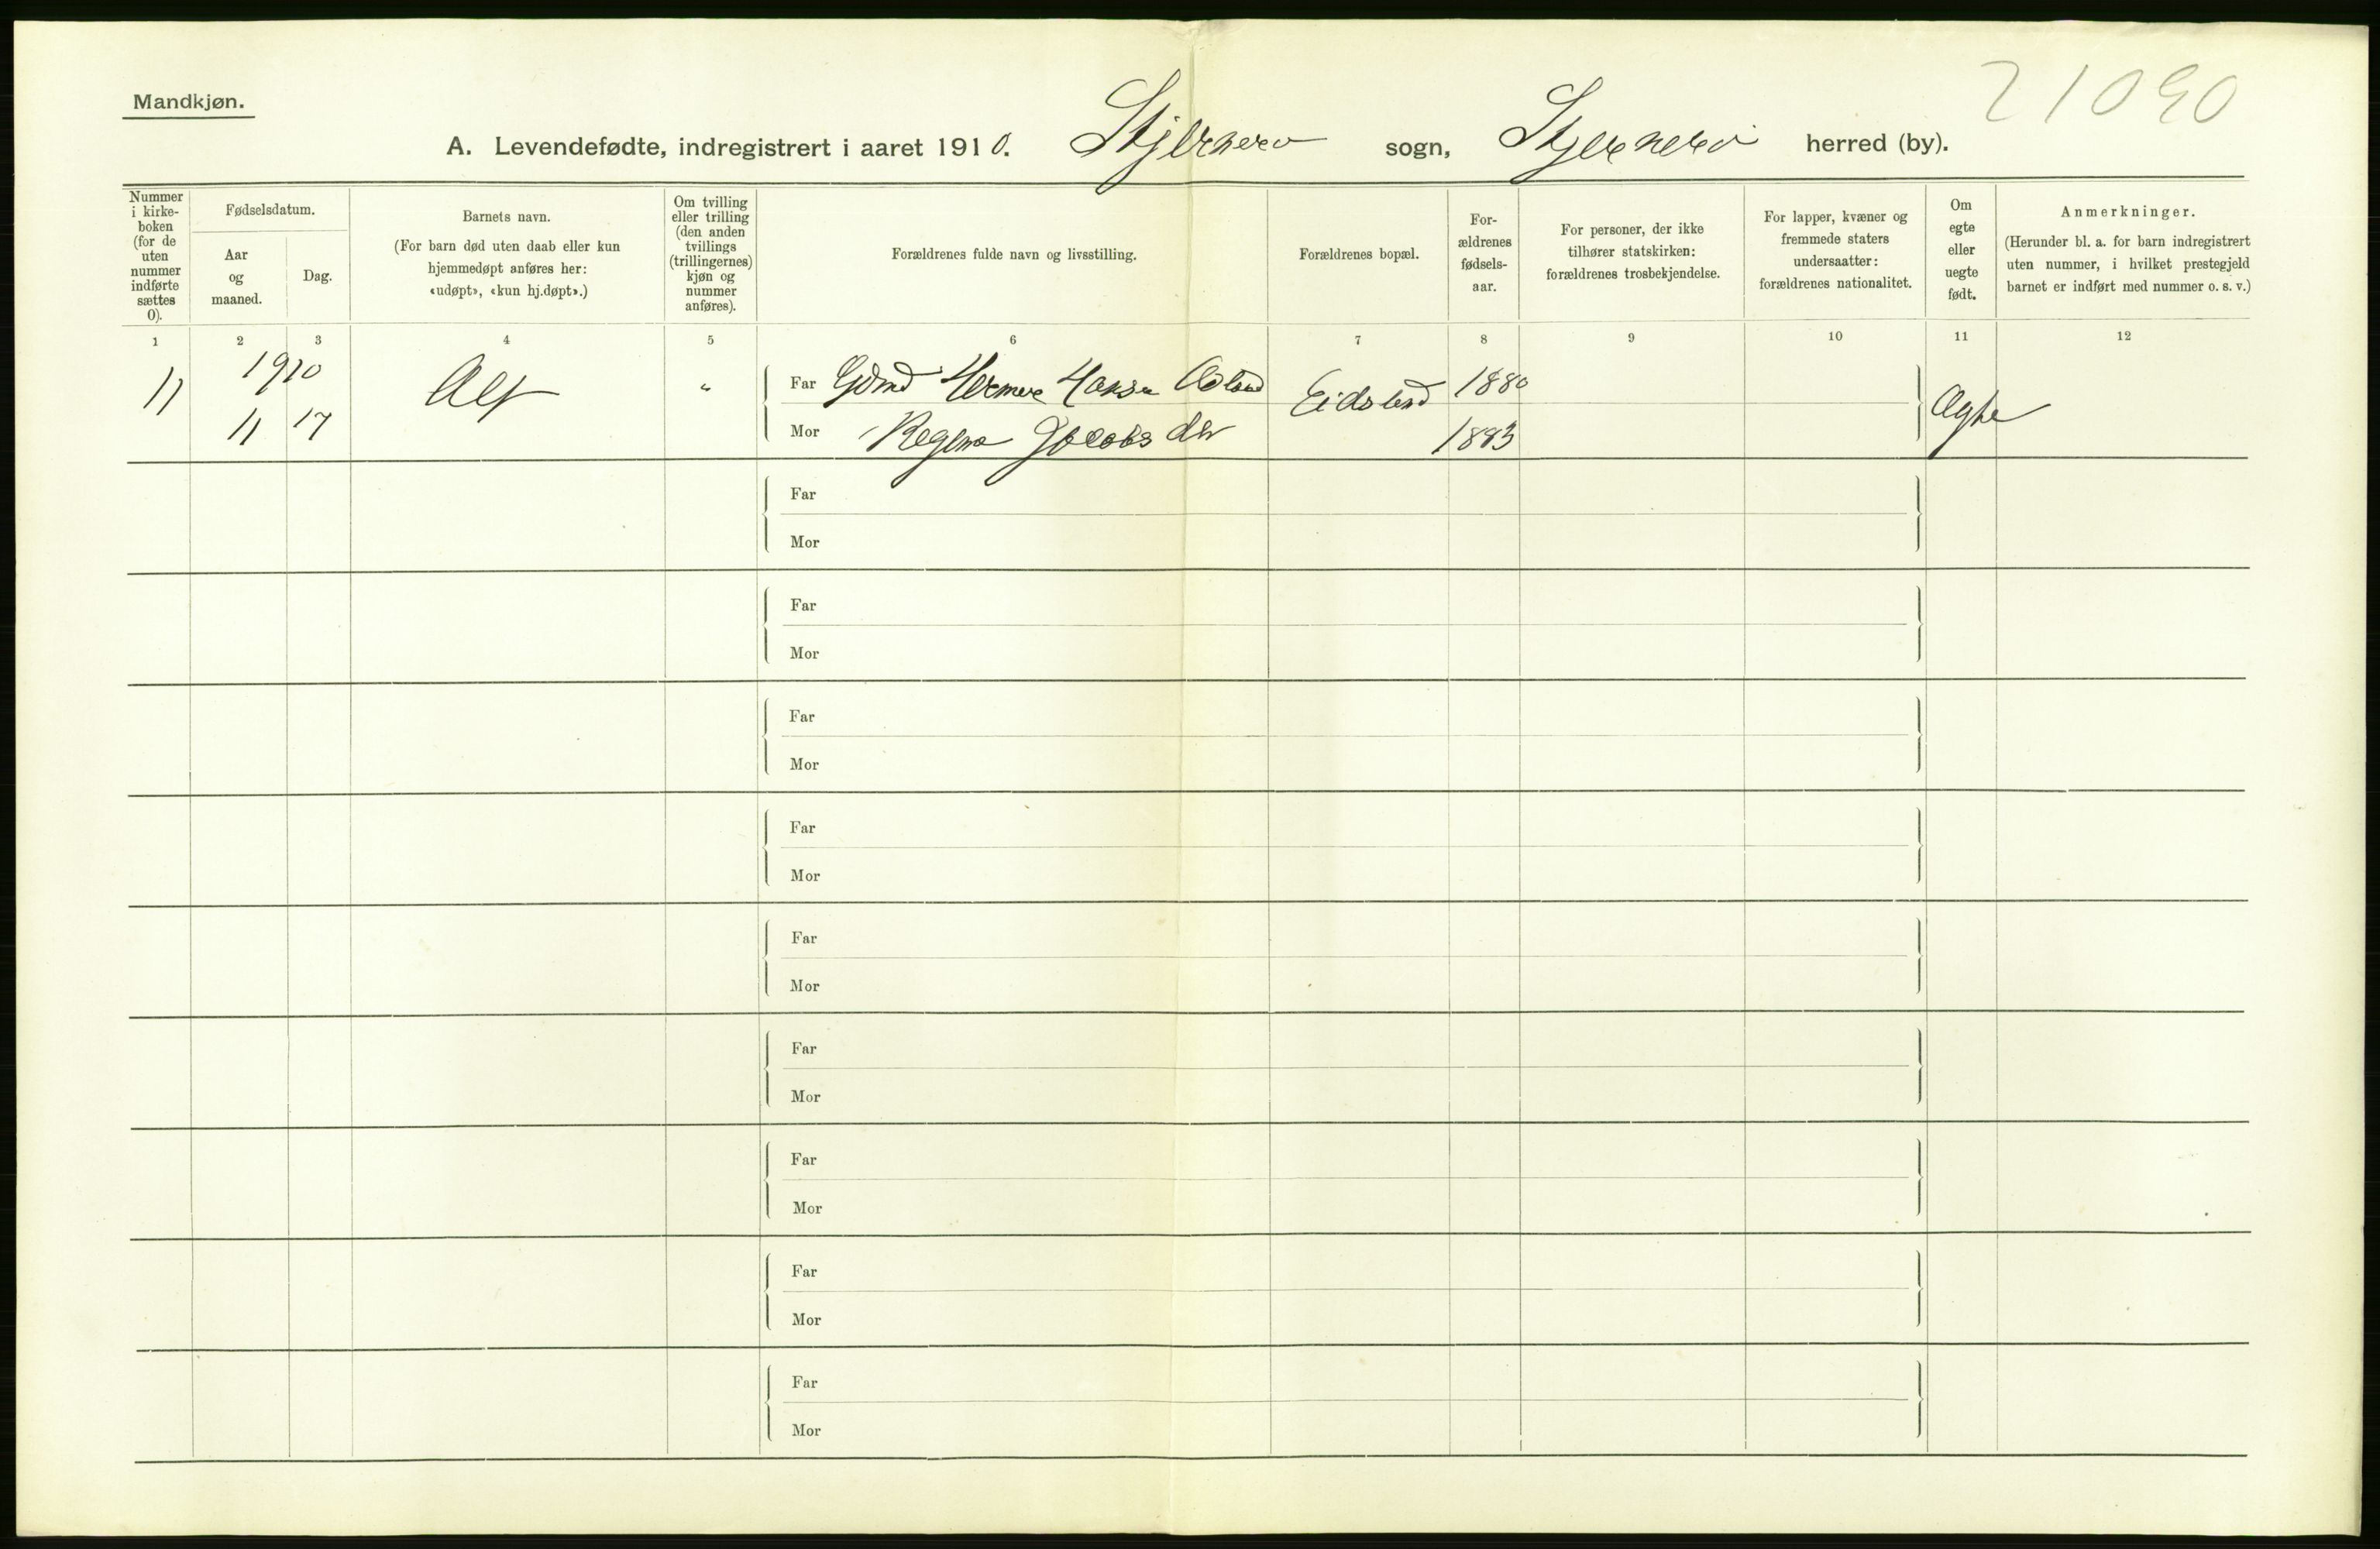 21090
Mandkjøn.
A. Levendefødte, indregistrert i aaret 1910. Stjernerø sogn, Stjernerø herred (by).
Nummer
i kirke-
boken
(for de
uten
nummer
indførte
sættes
0).
Fødselsdatum.
Aar
og
maaned.
Dag.
Barnets navn.
(For barn død uten daab eller kun
hjemmedøpt anføres her:
«udøpt», «kun hj.døpt».)
Om tvilling
eller trilling
(den anden
tvillings
(trillingernes)
kjøn og
nummer
anføres).
Forældrenes fulde navn og livsstilling.
Forældrenes bopæl.
For-
ældrenes
fødsels-
aar.
For personer, der ikke
tilhører statskirken:
forældrenes trosbekjendelse.
For lapper, kvæner og
fremmede staters
undersaatter:
forældrenes nationalitet.
Om
egte
eller
uegte
født.
Anmerkninger.
(Herunder bl. a. for barn indregistrert
uten nummer, i hvilket prestegjeld
barnet er indført med nummer o. s. v.)
1 2 3 4 5 6 7 8 9 10 11 12
11 1910 Alf " Far Gdmd Hansen Eidsland 1880 Ægte
11 17 Mor Regina Jacobsdtr 1883
Far
Mor
Far
Mor
Far
Mor
Far
Mor
Far
Mor
Far
Mor
Far
Mor
Far
Mor
Far
Mor